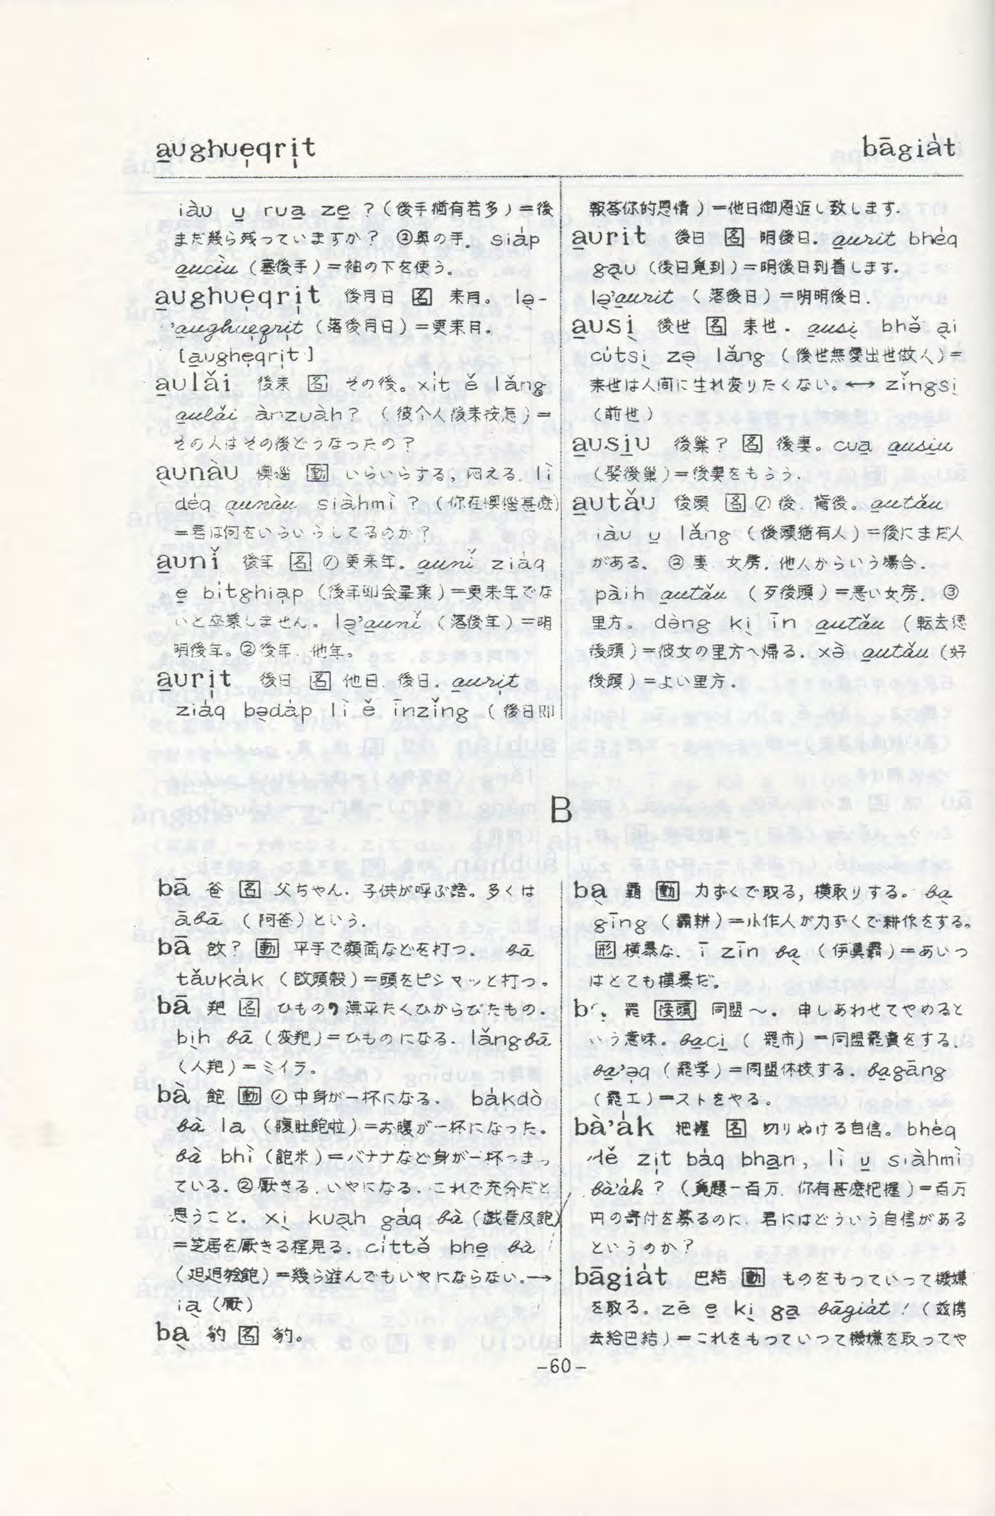 a̱ughue̩qri̩t
bāgiàt
iàu u̱ rua̱ ze̱ ?(後手猶有若多)=後
まだ幾ら残っていますか? ③奥の手。 siáp
a̱uciu (塞後手)=袖の下を使う。
a̱ughue̩qri̩t 後月日 名 来月。 lə̱-
'a̱ughue̩qri̩t (落後月日)=更来月。
[a̱ughe̩qri̩t]
a̱ulǎi 後来 名 その後。xit ě lǎng
a̱ulǎi ànzuàh? (彼个人後来按怎)=
その人はその後どうなったの?
aunàu 懊惱 動 いらいらする, 悶える. lì
déq aunàu siàhmi ? (你在懊惱甚麼)
=君は何をいらいらしてるのか?
a̱unǐ 後年 名 ①更来年. a̱unǐ ziáq
e̱ bitghia̩p (後年即会畢業)=更来年でな
いと卒業しません。 lə̱'a̱unǐ (落後年)=明
明後年。②後年. 他年。
a̱uri̩t 後日 名 他日. 後日. a̱uri̩t
ziáq bə̱dáp lì ě īnzǐng (後日即
報答你的恩情)=他日御恩返し致します.
a̱urit 後日 名 明後日. a̱urit bhéq
ga̱u (後日覓到)=明後日到着します.
lə̱'a̱urit (落後日)=明明後日.
a̱usi̱ 後世 名 来世. a̱usi̱ bhə̌ ai
cútsi̱ zə̱ lǎng (後世無愛出世做人)=
来世は人間に生れ変りたくない。←→ zǐngsi̱
(前世)
a̱usi̱u 後巣? 名 後妻。cua̱ a̱usi̱u
(娶後巣)=後妻をもらう.
a̱utǎu 後頭 名 ①後. 背後。a̱utǎu
iàu u̱ lǎng (後頭猶有人)=後にまだ人
がある. ②妻. 女房. 他人からいう場合.
pàih a̱utǎu (歹後頭)=悪い女房. ③
里方。 dèng ki̱ īn a̱utǎu (転去伊
後頭)=彼女の里方へ帰る. xə̀ a̱utǎu (好
後頭)=よい里方.
B
bā 爸 名 父ちゃん. 子供が呼ぶ語. 多くは
ābā (阿爸)という.
bā 䟦? 動 平手で頬面などを打つ. bā
tǎukák (䟦頭殻)=頭をピシャッと打つ。
bà 羓 名 ひもの, 薄平たくひからびたもの.
bi̱h bā (変羓)=ひものになる. lǎngbā
(人羓)=ミイラ。
bà 飽 動 ①中身が一杯になる. bàkdò
bà la (腹肚飽啦)=お腹が一杯になった.
bà bhì (飽米)=バナナなど身が一杯つまっ
ている. ②厭きる. いやになる. これで充分だと
思うこと。xi̱ kua̱h gáq bà (戯看及飽)
=芝居を厭きる程見る. bhe̱ bà
=幾ら遊んでもいやにならない.→
ia̱ (厭)
ba̱ 豹 名 豹。
ba̱ 霸 動 力ずくで取る, 横取りする。 ba̱
gīng (霸耕)=小作人が力ずくで耕作をする。
形 横暴な. ī zīn ba̱ (伊真霸)=あいつ
はとても横暴だ。
罷 接頭 同盟~. 申しあわせてやめると
いう意味. ba̱ci̱ (罷市)=同盟罷売をする.
ba̱'əq (罷学)=同盟休校する. ba̱gāng
(罷工)=ストをやる.
bà'ák 把握 名 切りぬける自信。bhéq
dě zi̩t báq bha̱n, lì u̱ siàhmi
bà'ák ? (覓題一百万. 你有甚麼把握)=百万
円の寄付を募るのに. 君にはどういう自信がある
というのか?
bāgiàt 巴結 動 ものをもっていって機嫌
を取る. zē e̱ ki̱ ga̱ bāgiàt ! (玆携
去給巴結)=これをもっていって機嫌を取ってや
-60-